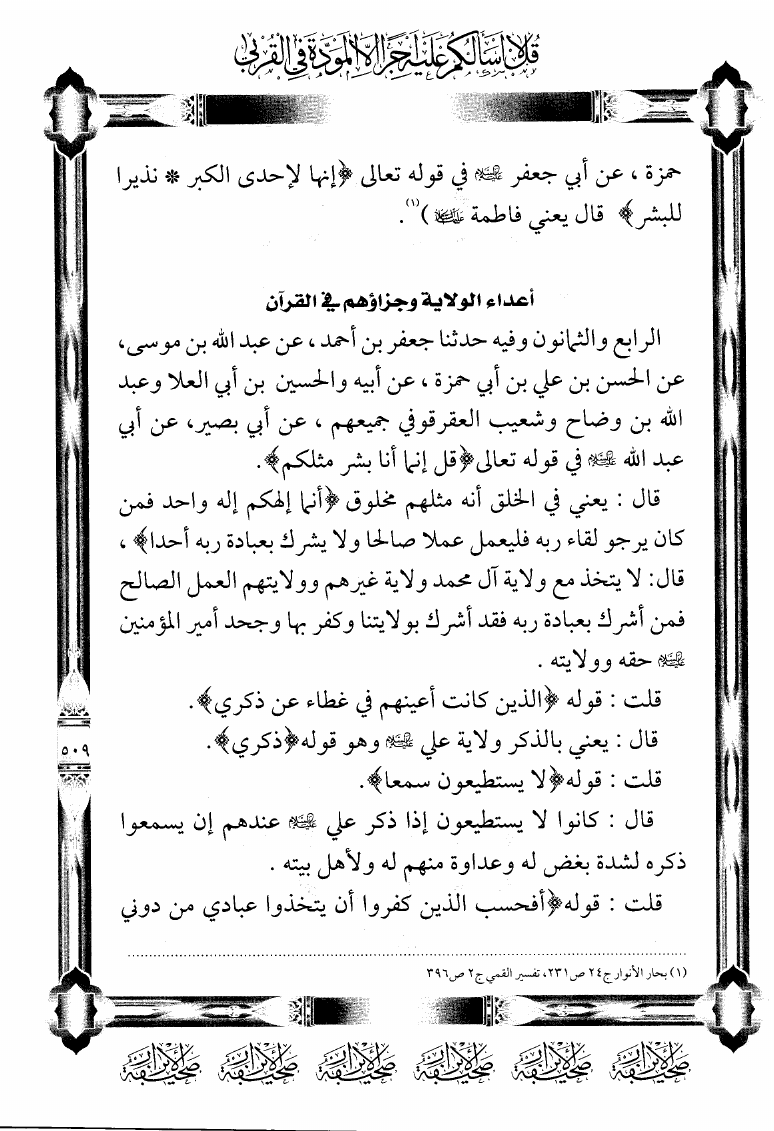 قل لا أسألكم عليه أجرا إلا المودة في القربى
حمزة ، عن أبي جعفر عليه السلام في قوله تعالى ﴿إنها لإحدى الكبر * نذيرا
للبشر﴾ قال يعني فاطمة عليها السلام )(١).
أعداء الولاية وجزاؤهم في القرآن
الرابع والثمانون وفيه حدثنا جعفر بن أحمد ، عن عبد الله بن موسى،
عن الحسن بن علي بن أبي حمزة ، عن أبيه والحسين بن أبي العلا وعبد
الله بن وضاح وشعيب العقرقوفي جميعهم ، عن أبي بصير، عن أبي
عبد الله عليه السلام في قوله تعالى﴿قل إنما أنا بشر مثلكم﴾.
قال : يعني في الخلق أنه مثلهم مخلوق ﴿أنما إلهكم إله واحد فمن
كان يرجو لقاء ربه فليعمل عملا صالحا ولا يشرك بعبادة ربه أحدا﴾ ،
قال: لا يتخذ مع ولاية آل محمد ولاية غيرهم وولايتهم العمل الصالح
فمن أشرك بعبادة ربه فقد أشرك بولايتنا وكفر بها وجحد أمير المؤمنين
عليه السلام حقه وولايته .
قلت : قوله ﴿الذين كانت أعينهم في غطاء عن ذكري﴾.
قال : يعني بالذكر ولاية علي عليه السلام وهو قوله﴿ذكري﴾.
قلت : قوله﴿لا يستطيعون سمعا﴾.
قال : كانوا لا يستطيعون إذا ذكر علي عليه السلام عندهم إن يسمعوا
ذكره لشدة بغض له وعداوة منهم له ولأهل بيته .
قلت : قوله﴿أفحسب الذين كفروا أن يتخذوا عبادي من دوني
٥٠٩
(١) بحار الأنوار ج٢٤ ص٢٣١، تفسير القمي ج٢ ص٣٩٦